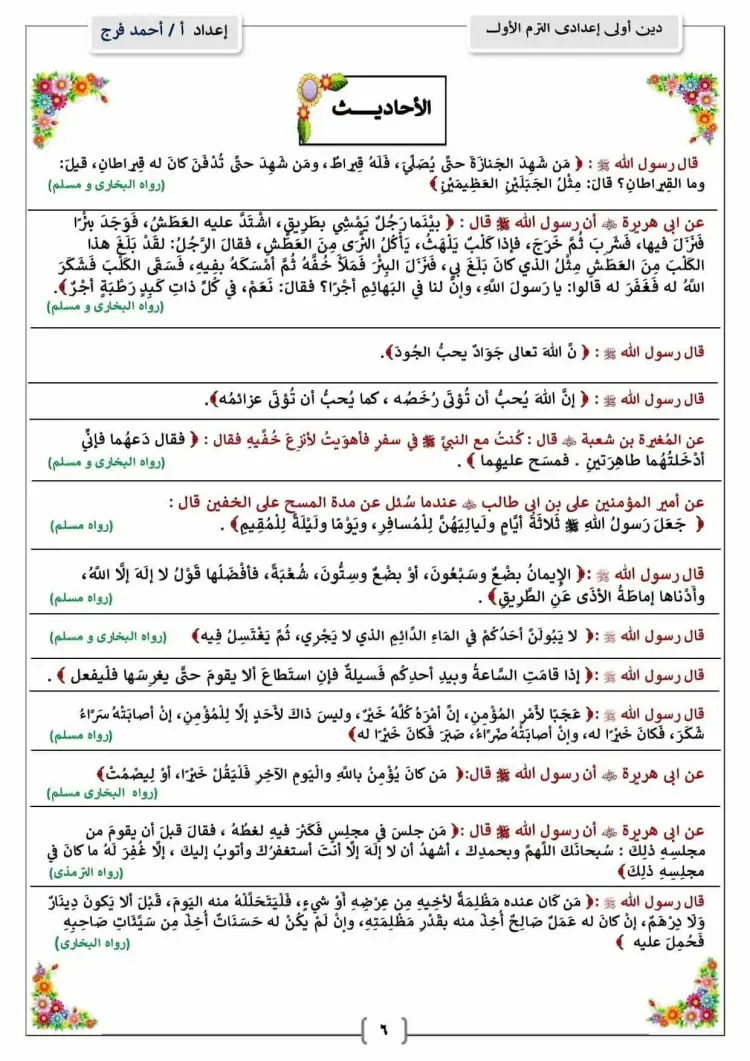 دين أولى إعدادى الترم الأول
إعداد أ / أحمد فرج
الأحاديــث
قال رسول الله ﷺ : ﴿ مَن شَهِدَ الجَنازَةَ حتَّى يُصَلِّيَ، فَلَهُ قِيراطٌ، ومَن شَهِدَ حتَّى تُدْفَنَ كانَ له قِيراطانِ، قيلَ:
وما القِيراطانِ؟ قالَ: مِثْلُ الجَبَلَيْنِ العَظِيمَيْنِ﴾ (رواه البخارى و مسلم)
عن ابى هريرة ﷺ أن رسول الله ﷺ قال : ﴿ بيْنَما رَجُلٌ يَمْشِي بطَرِيقٍ، اشْتَدَّ عليه العَطَشُ، فَوَجَدَ بِئْرًا
فَنَزَلَ فيها، فَشَرِبَ ثُمَّ خَرَجَ، فإذا كَلْبٌ يَلْهَثُ، يَأْكُلُ الثَّرَى مِنَ العَطَشِ، فقالَ الرَّجُلُ: لقَدْ بَلَغَ هذا
الكَلْبَ مِنَ العَطَشِ مِثْلُ الذي كانَ بَلَغَ بي، فَنَزَلَ البِئْرَ فَمَلَأَ خُفَّهُ ثُمَّ أمْسَكَهُ بفِيهِ، فَسَقَى الكَلْبَ فَشَكَرَ
اللَّهُ له فَغَفَرَ له قالوا: يا رَسولَ اللَّهِ، وإنَّ لنا في البَهائِمِ أجْرًا؟ فقالَ: نَعَمْ، في كُلِّ ذاتِ كَبِدٍ رَطْبَةٍ أجْرٌ﴾.
(رواه البخارى و مسلم)
قال رسول الله ﷺ : ﴿ نَّ اللهَ تعالى جَوَادٌ يحبُّ الجُودَ﴾.
قال رسول الله ﷺ : ﴿ إنَّ اللهَ يُحبُّ أن تُؤتَى رُخَصُه ، كما يُحبُّ أن تُؤتَى عزائمُه﴾.
عن المُغيرة بن شعبة ﷺ قال : كُنتُ مع النبيِّ ﷺ في سفرٍ فأهوَيتُ لأنزِعَ خُفَّيهِ فقال : ﴿ فقال دَعهُما فإنِّي
أدْخَلتُهُما طاهِرَتينِ . فمسَح عليهِما ﴾ . (رواه البخارى و مسلم)
عن أمير المؤمنين على بن ابى طالب ﷺ عندما سُئل عن مدة المسح على الخفين قال :
﴿ جَعَلَ رَسولُ اللهِ ﷺ ثَلاثَةَ أيَّامٍ ولَيالِيَهُنَّ لِلْمُسافِرِ، ويَوْمًا ولَيْلَةً لِلْمُقِيمِ﴾ . (رواه مسلم)
قال رسول الله ﷺ :﴿ الإيمانُ بضْعٌ وسَبْعُونَ، أوْ بضْعٌ وسِتُّونَ، شُعْبَةً، فأفْضَلُها قَوْلُ لا إلَهَ إلَّا اللَّهُ،
وأَدْناها إماطَةُ الأذَى عَنِ الطَّرِيقِ﴾ . (رواه مسلم)
قال رسول الله ﷺ :﴿ لا يَبُولَنَّ أحَدُكُمْ في المَاءِ الدَّائِمِ الذي لا يَجْرِي، ثُمَّ يَغْتَسِلُ فِيه﴾ (رواه البخارى و مسلم)
قال رسول الله ﷺ :﴿ إذا قامَتِ السَّاعةُ وبيدِ أحدِكُم فَسيلةٌ فإنِ استَطاعَ ألا يقومَ حتَّى يغرِسَها فلْيفعل ﴾ .
قال رسول الله ﷺ :﴿ عَجَبًا لأَمْرِ المُؤْمِنِ، إنَّ أمْرَهُ كُلَّهُ خَيْرٌ، وليسَ ذاكَ لأَحَدٍ إلَّا لِلْمُؤْمِنِ، إنْ أصابَتْهُ سَرَّاءُ
شَكَرَ، فَكانَ خَيْرًا له، وإنْ أصابَتْهُ ضَرَّاءُ، صَبَرَ فَكانَ خَيْرًا له﴾ (رواه مسلم)
عن ابى هريرة ﷺ أن رسول الله ﷺ قال:﴿ مَن كانَ يُؤْمِنُ باللَّهِ واليَومِ الآخِرِ فَلْيَقُلْ خَيْرًا، أوْ لِيصْمُتْ﴾
(رواه البخارى مسلم)
عن ابى هريرة ﷺ أن رسول الله ﷺ قال :﴿ مَن جلسَ في مجلِسٍ فَكَثرَ فيهِ لغطُهُ ، فقالَ قبلَ أن يقومَ من
مجلسِهِ ذلِكَ : سُبحانَك اللَّهمَّ وبحمدِكَ ، أشهدُ أن لا إلَهَ إلَّا أنتَ أستغفرُكَ وأتوبُ إليكَ ، إلَّا غُفِرَ لَهُ ما كانَ في
مجلِسِهِ ذلِكَ﴾ (رواه الترمذى)
قال رسول الله ﷺ :﴿ مَن كان عنده مَظْلِمةٌ لأخيهِ مِن عِرْضِهِ أوْ شيءٍ، فَلْيَتَحَلَّلْهُ منه اليَومَ، قَبْلَ ألا يَكونَ دِينَارٌ
وَلَا دِرْهَمٌ، إنْ كانَ له عَمَلٌ صَالِحٌ أُخِذَ منه بقَدْرِ مَظْلِمَتِهِ، وإنْ لَمْ يَكُنْ له حَسَنَاتٌ أُخِذَ مِن سَيِّئَاتِ صَاحِبِهِ
فَحُمِلَ عليه ﴾ (رواه البخارى)
٦